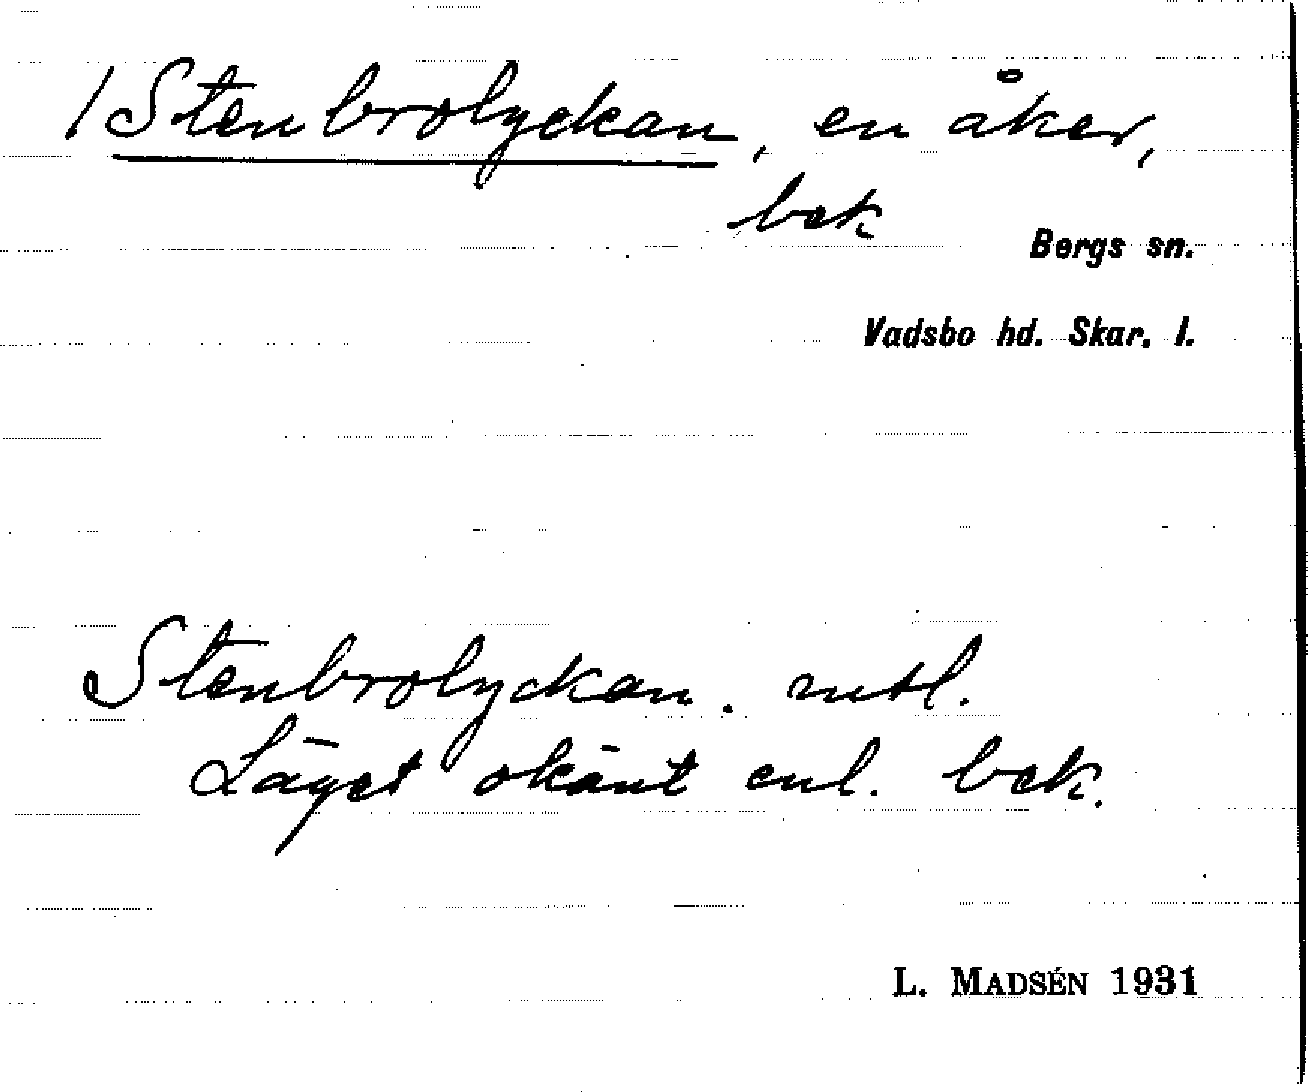 /Stenbrolyckan, en åker,
bek
Bergs sn.
Vadsbo hd. Skar. l.
Stenbrolyckan. mtl.
Läget okänt enl. bek.
L. MADSÉN 1931